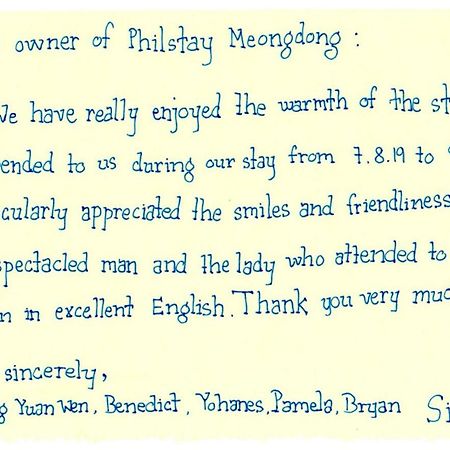 owner of Philstay Meongdong :
We have really enjoyed the warmth of the st
ended to us during our stay from 7.8.19 to
cularly appreciated the smiles and friendliness
spectacled man and the lady who attended to
n in excellent English. Thank you very muc
sincerely,
g Yuan Wen, Benedict, Yohanes, Pamela, Bryan Si